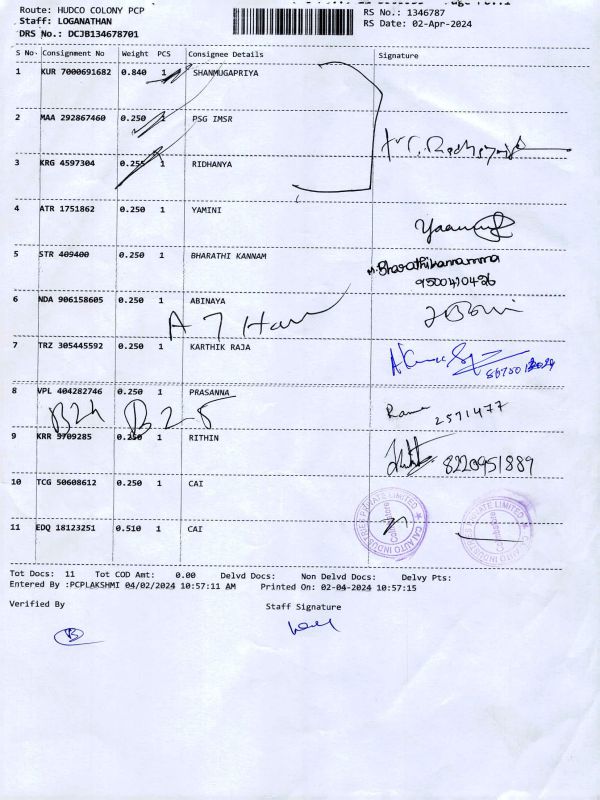 Route: HUDCO COLONY PCP
Staff: LOGANATHAN
DRS No.: DCJB134678701
RS No.: 1346787
RS Date: 02-Apr-2024
S No. Consignment No Weight PCS Consignee Details Signature
1 KUR 7000691682 0.840 1 SHANMUGAPRIYA
2 MAA 292867460 0.250 1 PSG IMSR
3 KRG 4597304 0.255 1 RIDHANYA
4 ATR 1751862 0.250 1 YAMINI
5 STR 409400 0.250 1 BHARATHI KANNAM
Bharathikannamma
9500410426
6 NDA 906158605 0.250 1 ABINAYA
A 7
7 TRZ 305445592 0.250 1 KARTHIK RAJA
8 VPL 404282746 0.250 1 PRASANNA
2571477
9 KRR 9709285 0.250 1 RITHIN
8220951889
10 TCG 50608612 0.250 1 CAI
11 EDQ 18123251 0.510 1 CAI
CAI AUTO INDUSTRIES PRIVATE LIMITED
Coimbatore
Tot Docs: 11 Tot COD Amt: 0.00 Delvd Docs: Non Delvd Docs: Delvy Pts:
Entered By :PCPLAKSHMI 04/02/2024 10:57:11 AM Printed On: 02-04-2024 10:57:15
Verified By Staff Signature